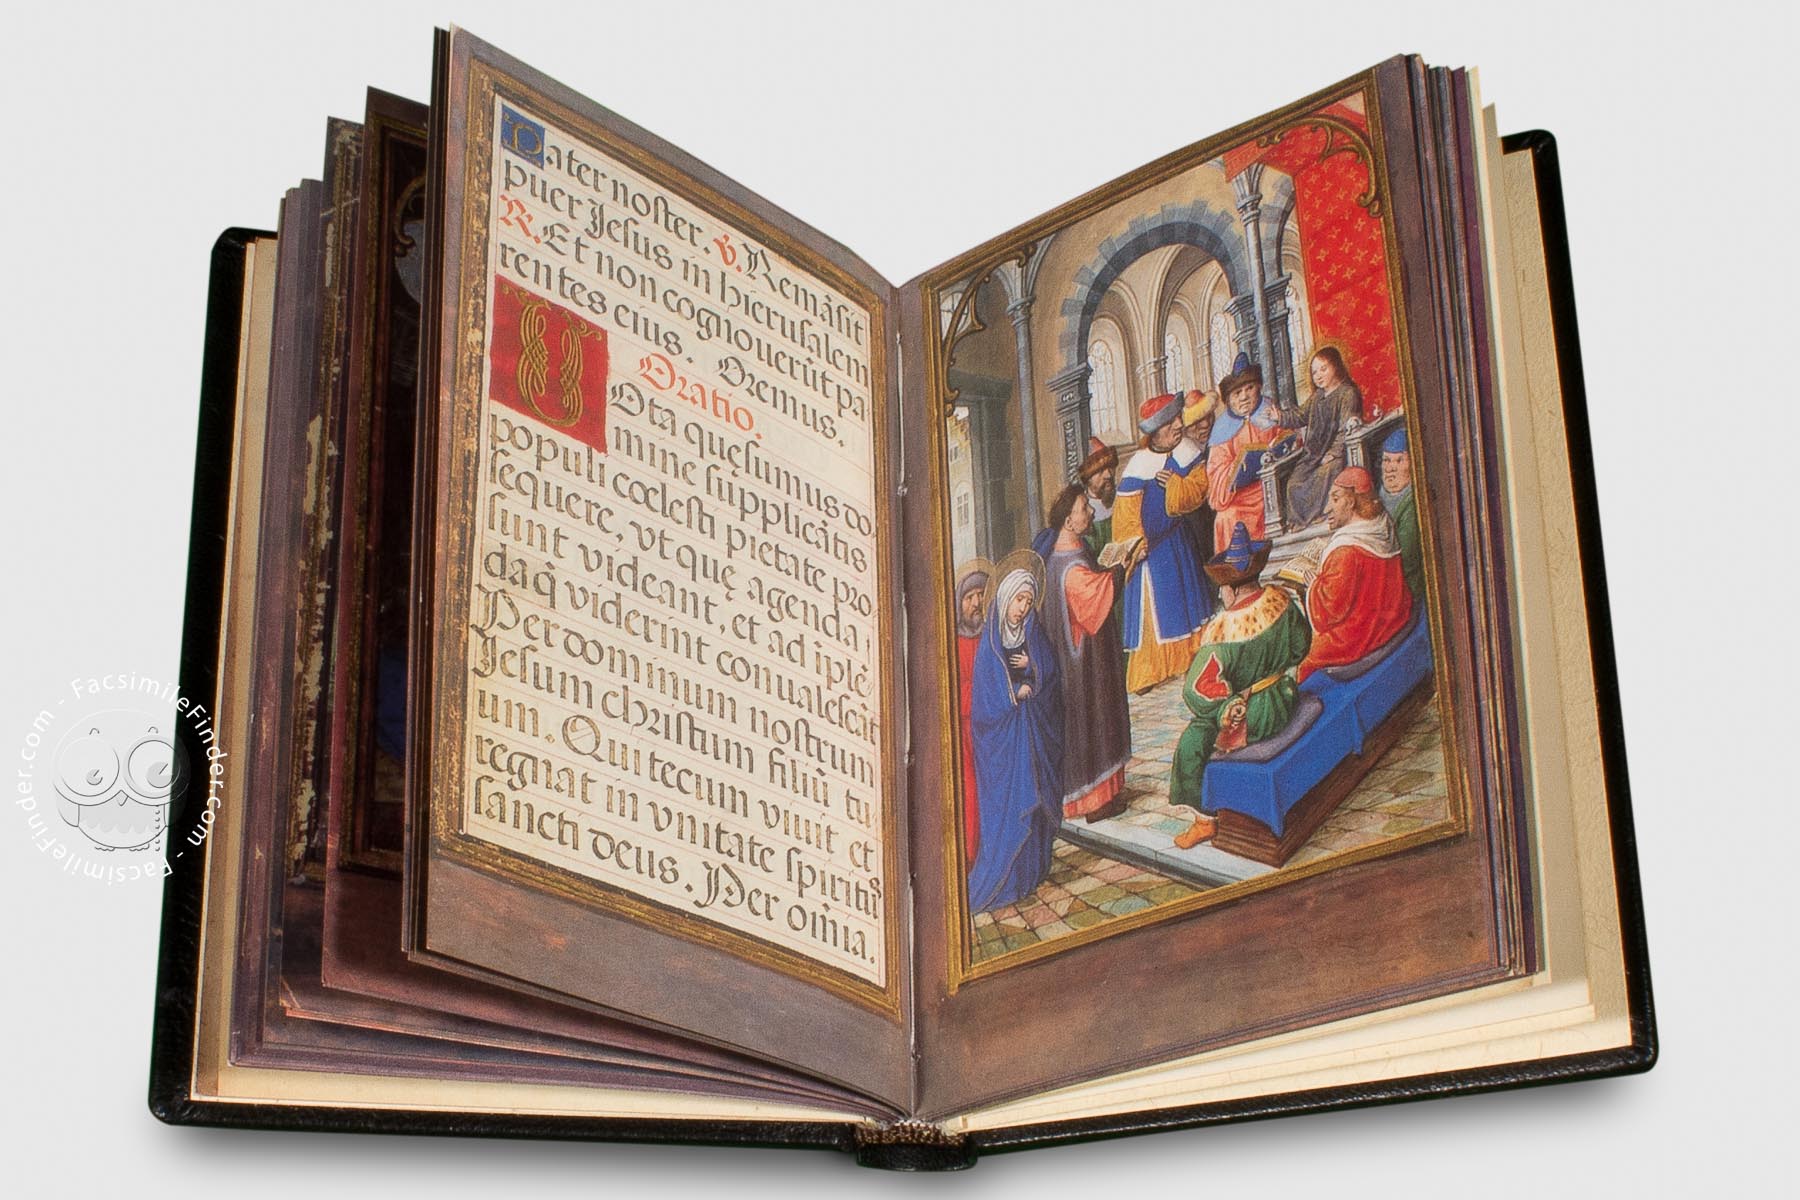 Pater noster. v. Remãsit
puer Jesus in hierusalem
R. Et non cognouerũt pa
rentes eius. Oremus.
Oratio.
VOta quęsumus do
mine supplicãtis
populi cœlesti pietate pro
sequere, vt quę agenda
sunt videant, et ad iplẽ
da q̃ viderint conualescãt
Per dominum nostrum
Jesum christum filiũ tu
um. Qui tecum viuit et
regnat in vnitate spiritus
sancti deus. Per om̃ia.
FacsimileFinder.com - FacsimileFinder.com - Facsimile